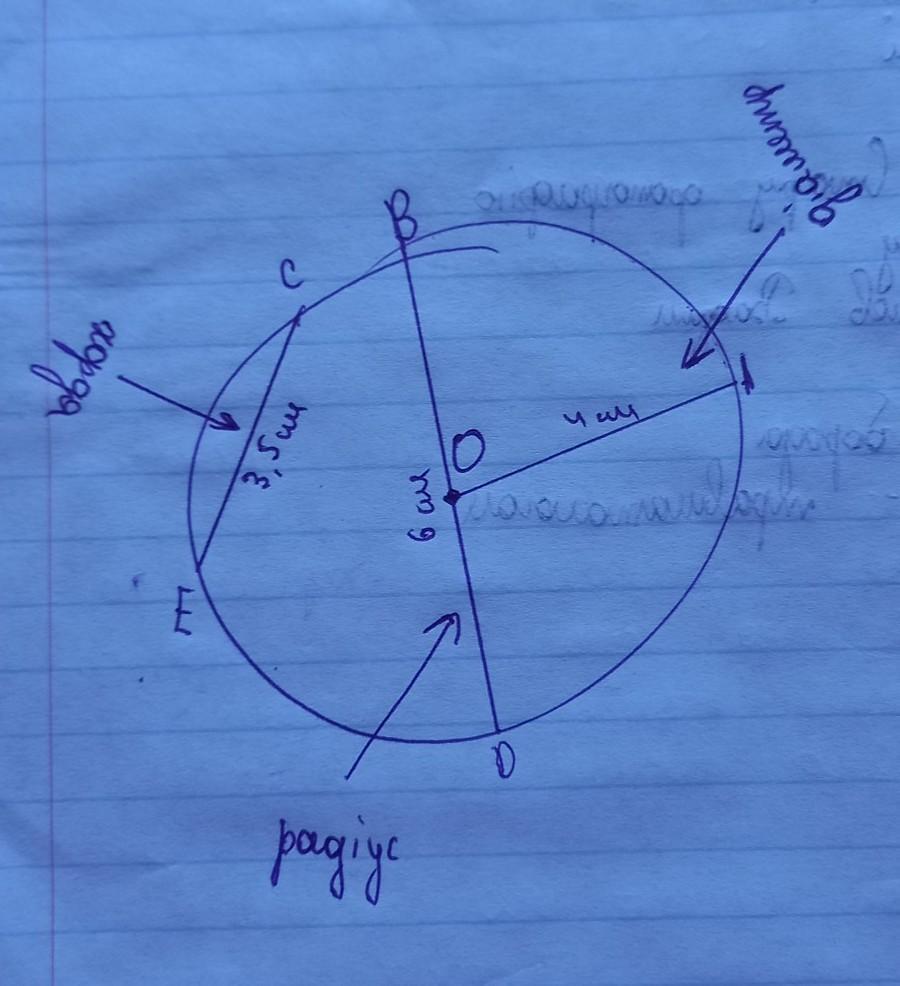 діаметр
B
C
хорда
A
4 см
3,5 см
O
6 см
E
D
радіус